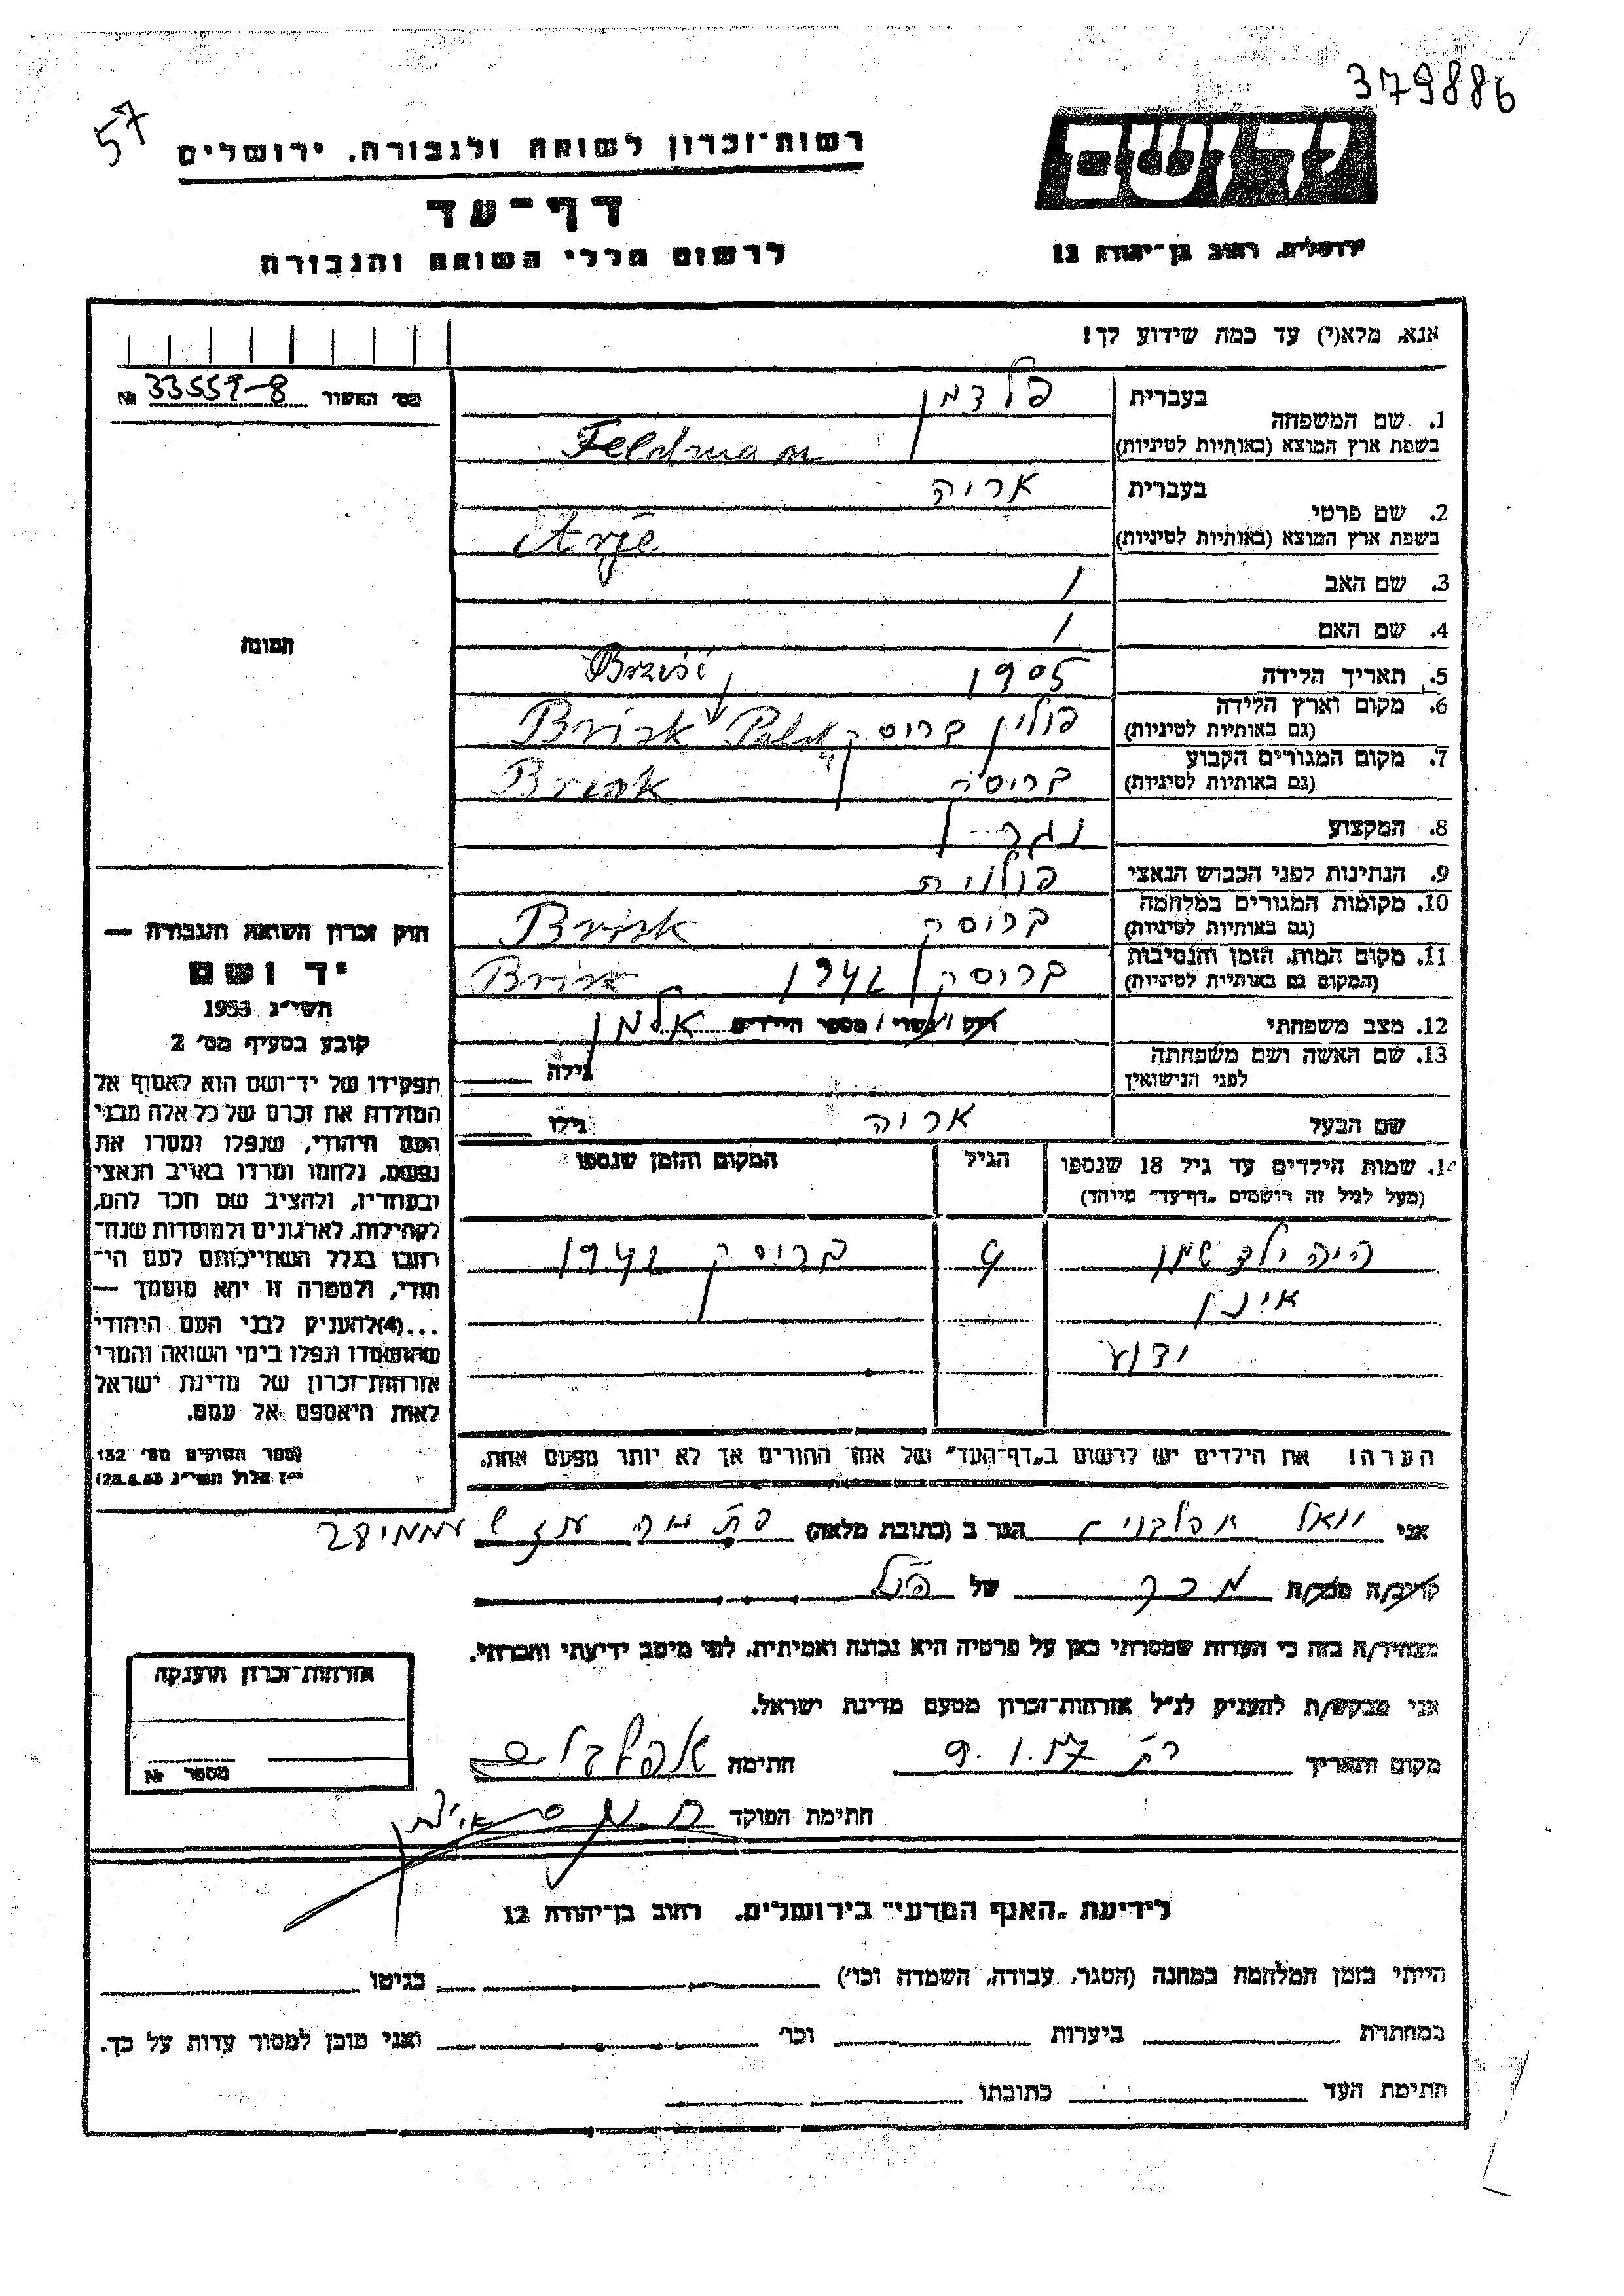 379886
57
יד ושם
רשות־זכרון לשואה ולגבורה, ירושלים
דף־עד
לרשום חללי השואה והגבורה
ירושלים, רחוב בן־יהודה 12
אנא, מלא(י) עד כמה שידוע לך!
מס׳ האשור 33559-8 №
1. שם המשפחה
בעברית פלדמן
בשפת ארץ המוצא (באותיות לטיניות) Feldman
2. שם פרטי
בעברית אריה
בשפת ארץ המוצא (באותיות לטיניות) Arje
3. שם האב /
4. שם האם /
5. תאריך הלידה 1905
6. מקום וארץ הלידה
(גם באותיות לטיניות) פולין בריסק Brisk
7. מקום המגורים הקבוע
(גם באותיות לטיניות) בריסק Brisk
8. המקצוע נגר
9. הנתינות לפני הכבוש הנאצי פולנית
10. מקומות המגורים במלחמה
(גם באותיות לטיניות) בריסק Brisk
11. מקום המות, הזמן והנסיבות
(המקום גם באותיות לטיניות) בריסק 1942 Brisk
12. מצב משפחתי רוק / נשוי / מספר הילדים אלמן
13. שם האשה ושם משפחתה
לפני הנישואין גילה
שם הבעל אריה גילו
14. שמות הילדים עד גיל 18 שנספו
(מעל לגיל זה רושמים „דף־עד״ מיוחד)
הגיל
המקום והזמן שנספו
היה ילד שמו
בריסק 1942
אינו
ידוע
הערה! את הילדים יש לרשום ב„דף־העד״ של אחד ההורים אך לא יותר מפעם אחת.
התמונה
חוק זכרון השואה והגבורה —
יד ושם
תשי״ג 1953
קובע בסעיף מס׳ 2
תפקידו של יד־ושם הוא לאסוף אל
המולדת את זכרם של כל אלה מבני
העם היהודי, שנפלו ומסרו את
נפשם, נלחמו ומרדו באויב הנאצי
ובעוזריו, ולהציב שם וזכר להם,
לקהילות, לארגונים ולמוסדות שנח־
רבו בגלל השתייכותם לעם הי־
הודי, ולמטרה זו יהא מוסמך —
...(4)להעניק לבני העם היהודי
שהושמדו ונפלו בימי השואה והמרי
אזרחות־זכרון של מדינת ישראל
לאות היאספם אל עמם.
(ספר החוקים מס׳ 132
אני הגר ב (כתובת מלאה)
קרוב/ה מכר/ה מכר של הנ״ל
מצהיר/ה בזה כי העדות שמסרתי כאן על פרטיה היא נכונה ואמיתית, לפי מיטב ידיעתי והכרתי.
אני מבקש/ת להעניק לנ״ל אזרחות־זכרון מטעם מדינת ישראל.
מקום ותאריך 9.1.57 חתימה
חתימת הפוקד
אזרחות־זכרון הוענקה
מספר №
לידיעת „האגף המדעי״ בירושלים, רחוב בן־יהודה 12
הייתי בזמן המלחמה במחנה (הסגר, עבודה, השמדה וכו׳) בגיטו
במחתרת ביערות וכו׳ ואני מוכן למסור עדות על כך.
חתימת העד כתובתו